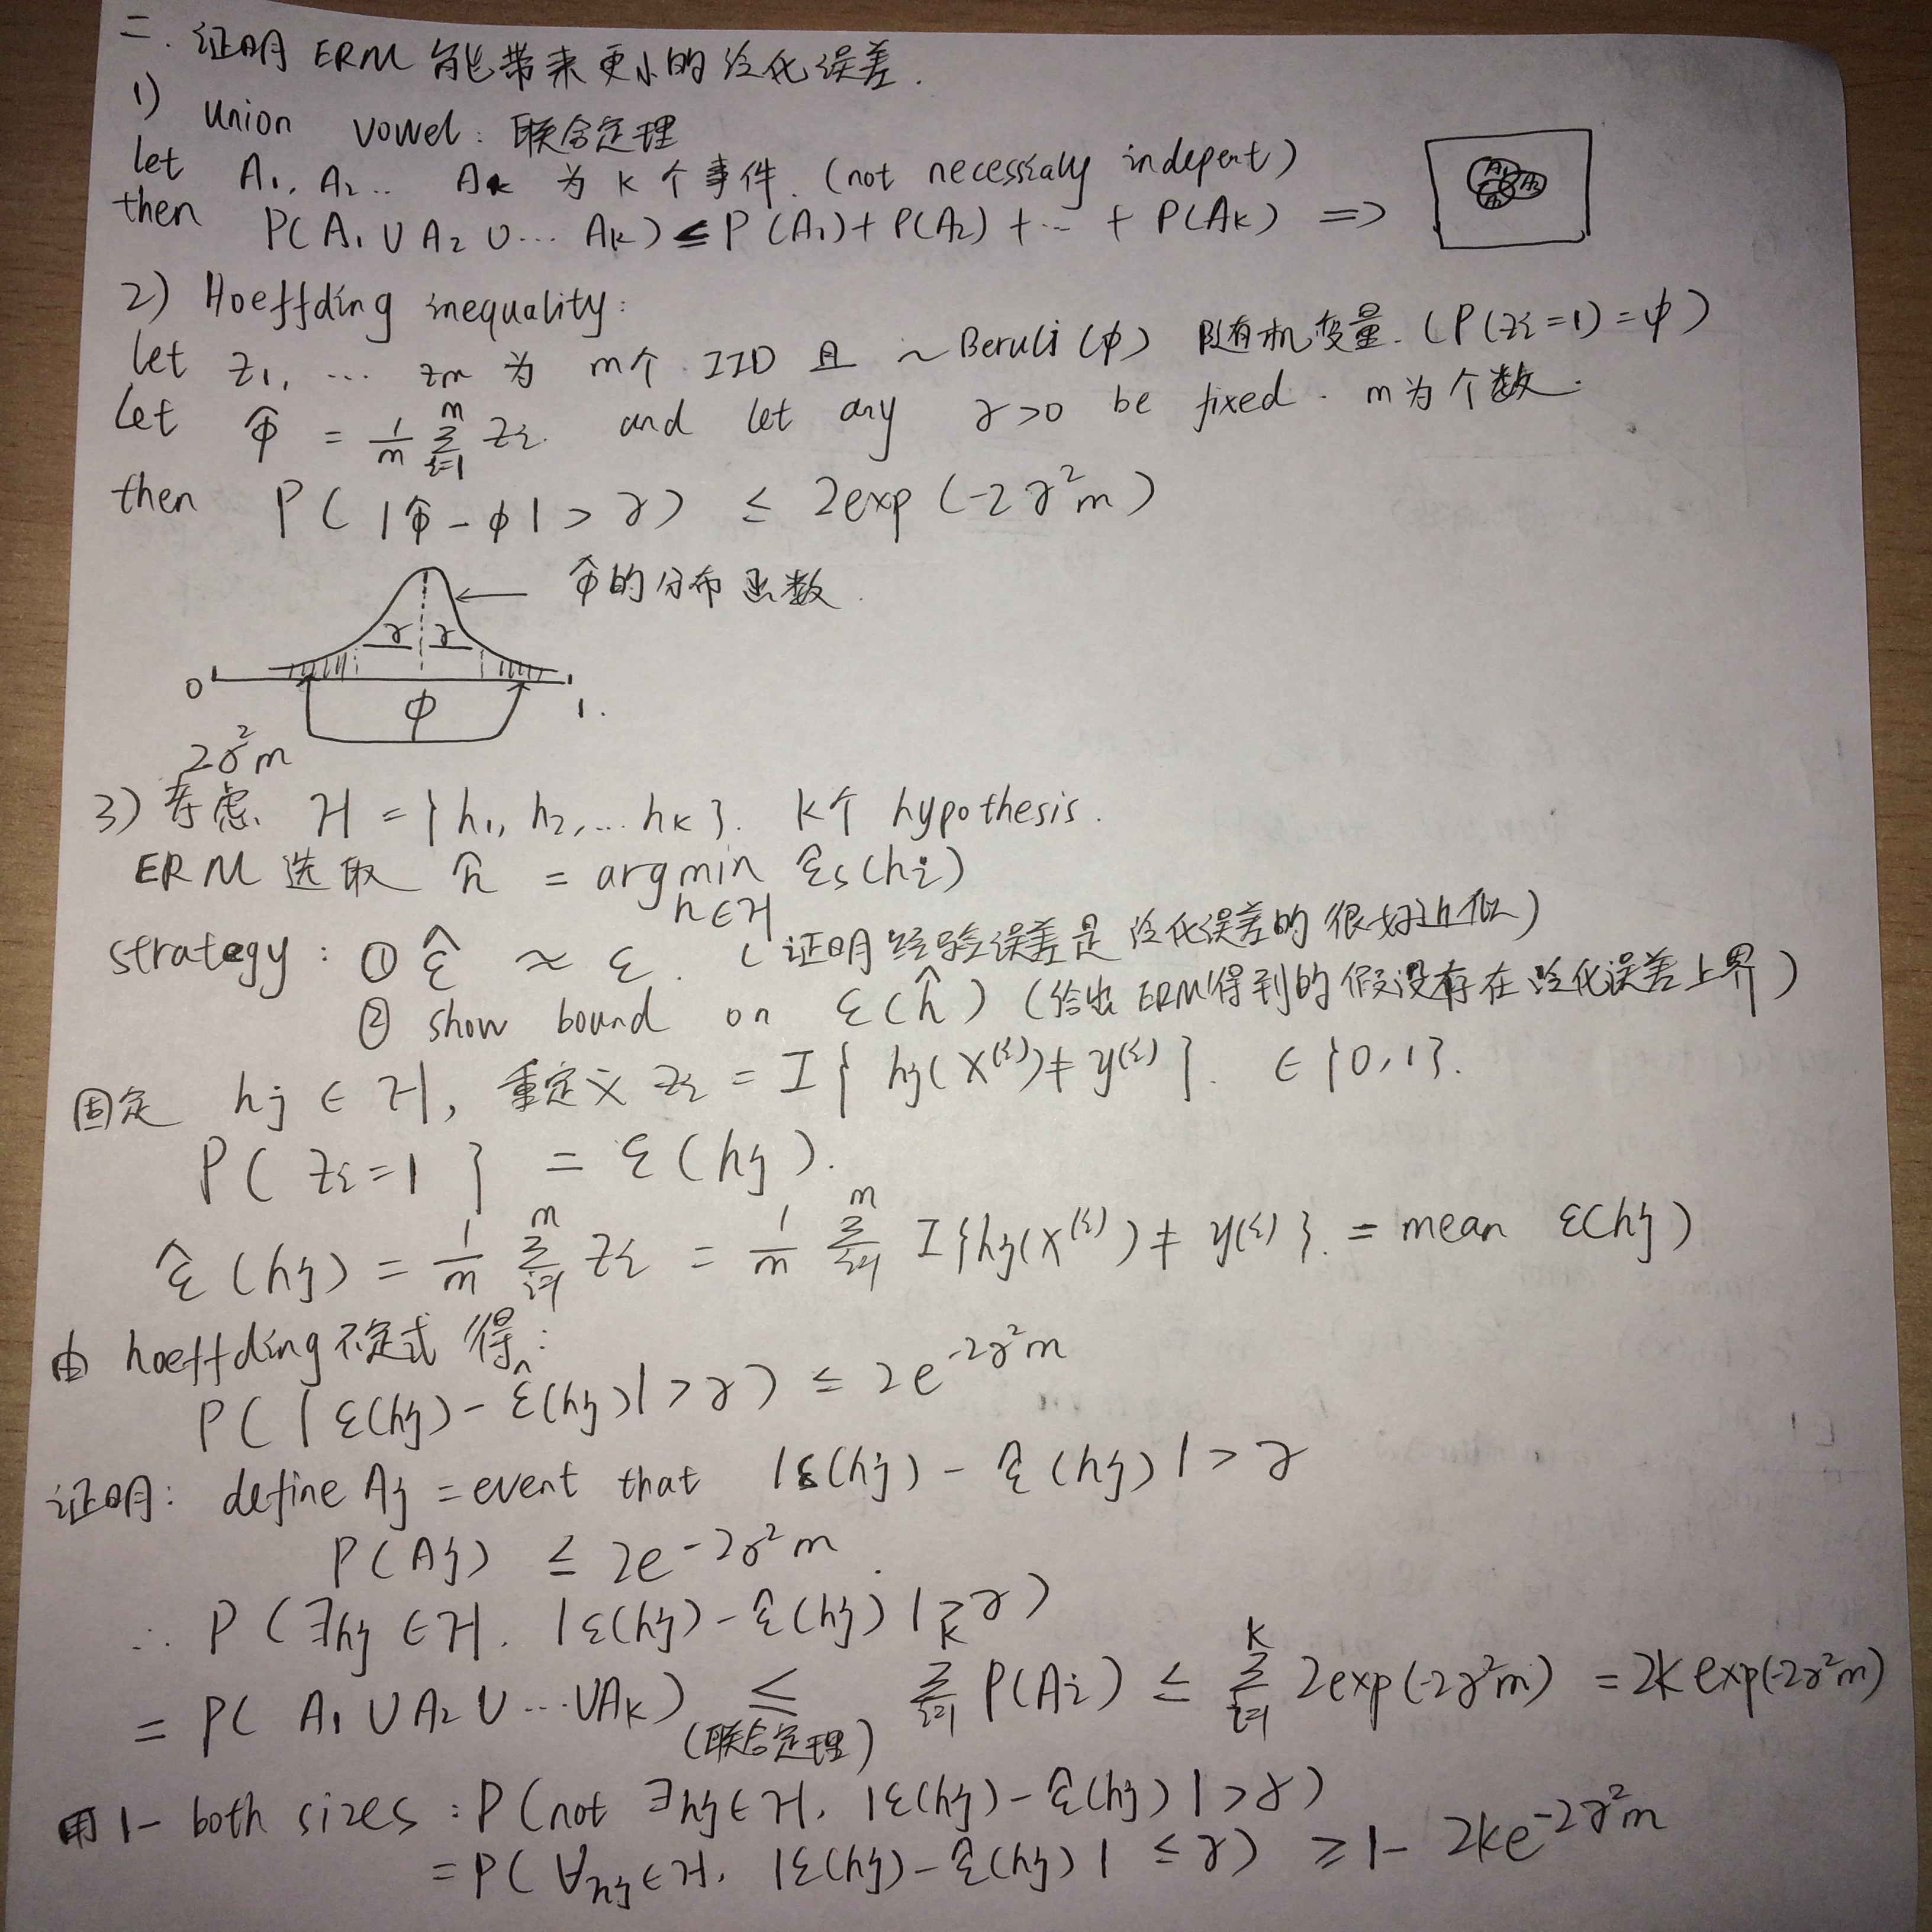 二. 证明 ERM 能带来更小的泛化误差.
1) union vowel: 联合定理
let A₁, A₂.. Aₖ 为 k 个事件. (not necessially indepent)
then P(A₁ ∪ A₂ ∪ ... Aₖ) ≤ P(A₁) + P(A₂) + ... + P(Aₖ) =>
A₁ A₂ A₃
2) Hoeffding inequality:
let z₁, ... zm 为 m个 IID 且 ~ Beruli(φ) 随机变量. (P(zᵢ=1)=φ)
Let φ̂ = 1/m Σᵢ₌₁ᵐ zᵢ. and let any γ>0 be fixed. m为个数.
then P(|φ̂ - φ| > γ) ≤ 2exp(-2γ²m)
φ̂的分布函数.
γ γ
0 φ 1.
2γ²m
3) 考虑 H = {h₁, h₂, ... hₖ}. k个 hypothesis.
ERM 选取 ĥ = argmin ε̂s(hᵢ)
h∈H
strategy: ① ε̂ ≈ ε. (证明经验误差是泛化误差的很好近似)
② show bound on ε(ĥ) (给出ERM得到的假设存在泛化误差上界)
固定 hj ∈ H, 重定义 zᵢ = I{ hj(x⁽ⁱ⁾) ≠ y⁽ⁱ⁾ }. ∈ {0,1}.
P( zᵢ=1 } = ε(hj).
ε̂(hj) = 1/m Σᵢ₌₁ᵐ zᵢ = 1/m Σᵢ₌₁ᵐ I{hj(x⁽ⁱ⁾) ≠ y⁽ⁱ⁾}. = mean ε(hj)
由 hoeffding 不定式 得:
P( |ε(hj) - ε̂(hj)| > γ) ≤ 2e^{-2γ²m}
证明: define Aj = event that |ε(hj) - ε̂(hj)| > γ
P(Aj) ≤ 2e^{-2γ²m}.
∴ P(∃hj ∈ H. |ε(hj) - ε̂(hj)| > γ)
= P( A₁ ∪ A₂ ∪ ... ∪Aₖ) ≤ Σᵢ₌₁ᵏ P(Aᵢ) ≤ Σᵢ₌₁ᵏ 2exp(-2γ²m) = 2k exp(-2γ²m)
(联合定理)
用 1- both sizes: P(not ∃hj ∈ H. |ε(hj) - ε̂(hj)| > γ)
= P( ∀hj ∈ H. |ε(hj) - ε̂(hj)| ≤ γ) ≥ 1- 2ke^{-2γ²m}